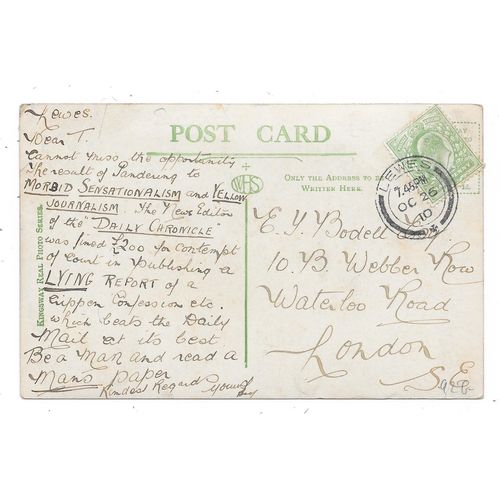 Lewes.
Dear T.
Cannot miss the opportunity
The result of Pandering to
MORBID SENSATIONALISM and YELLOW
JOURNALISM. The News Editor
of the "DAILY CHRONICLE"
was fined £200 for Contempt
of Court in Publishing a
LYING REPORT of a
Crippen Confession etc.
which beats the Daily
Mail at its best
Be a Man and read a
Mans paper
Kindest Regards Yours
KINGSWAY REAL PHOTO SERIES.
POST CARD
WHS
ONLY THE ADDRESS TO BE
WRITTEN HERE.
LEWES
7.45PM
OC 26
10
E. J. Bodell
10. B. Webber Row
Waterloo Road
London
S.E.